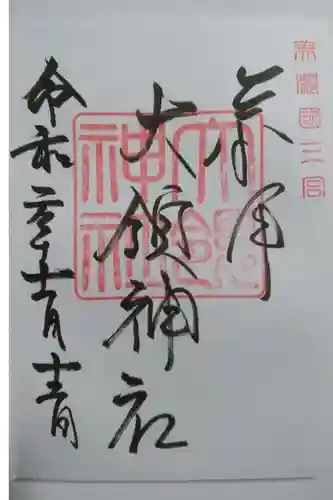 美濃國二宮
奉拝
大領神社
大領神社
令和二年十一月十三日